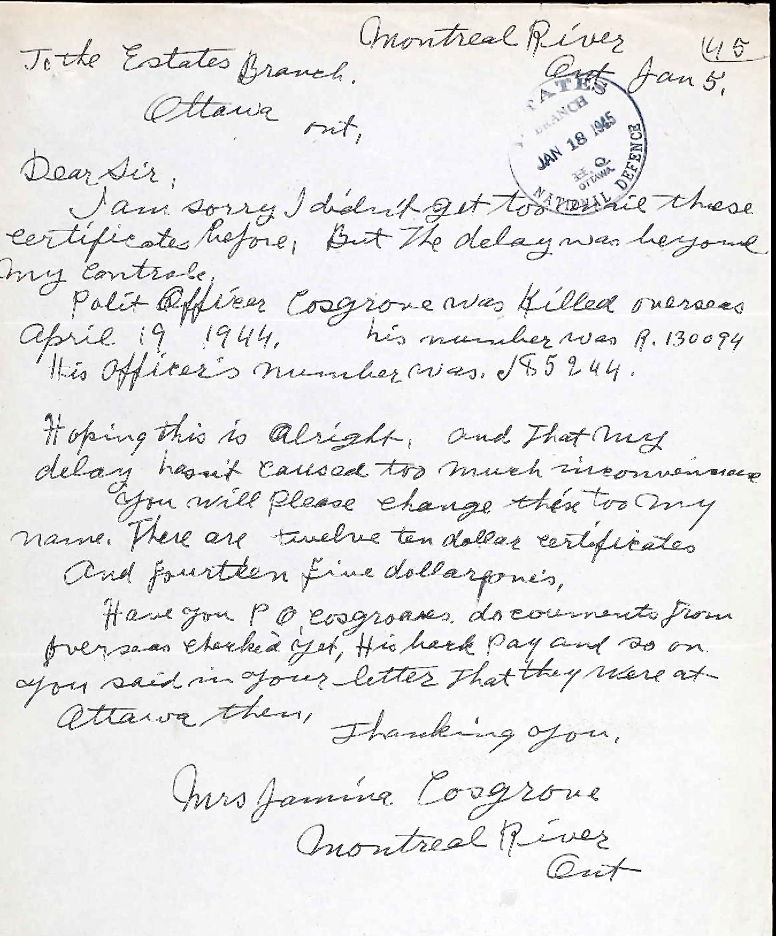 Montreal River
45
To the Estates Branch.
Ont Jan 5.
Ottawa
ont,
ESTATES
BRANCH
JAN 18 1945
OTTAWA
NATIONAL DEFENCE
Dear Sir,
I am sorry I didn't get too these
certificates before, But The delay was beyond
my controle,
Polit Officer Cosgrove was Killed overseas
April 19 1944. his number was R. 130094
His officer's number was. J85244.
Hoping this is Alright, and That My
delay hasn't caused too much inconvenience
You will Please change these too My
name. There are twelve ten dollar certificates
And fourteen five dollar one's,
Have you P O Cosgroves documents from
overseas checked yet, His back Pay and so on
you said in your letter That they were at
Ottawa then,
Thanking you,
Mrs Jamina Cosgrove
Montreal River
Ont